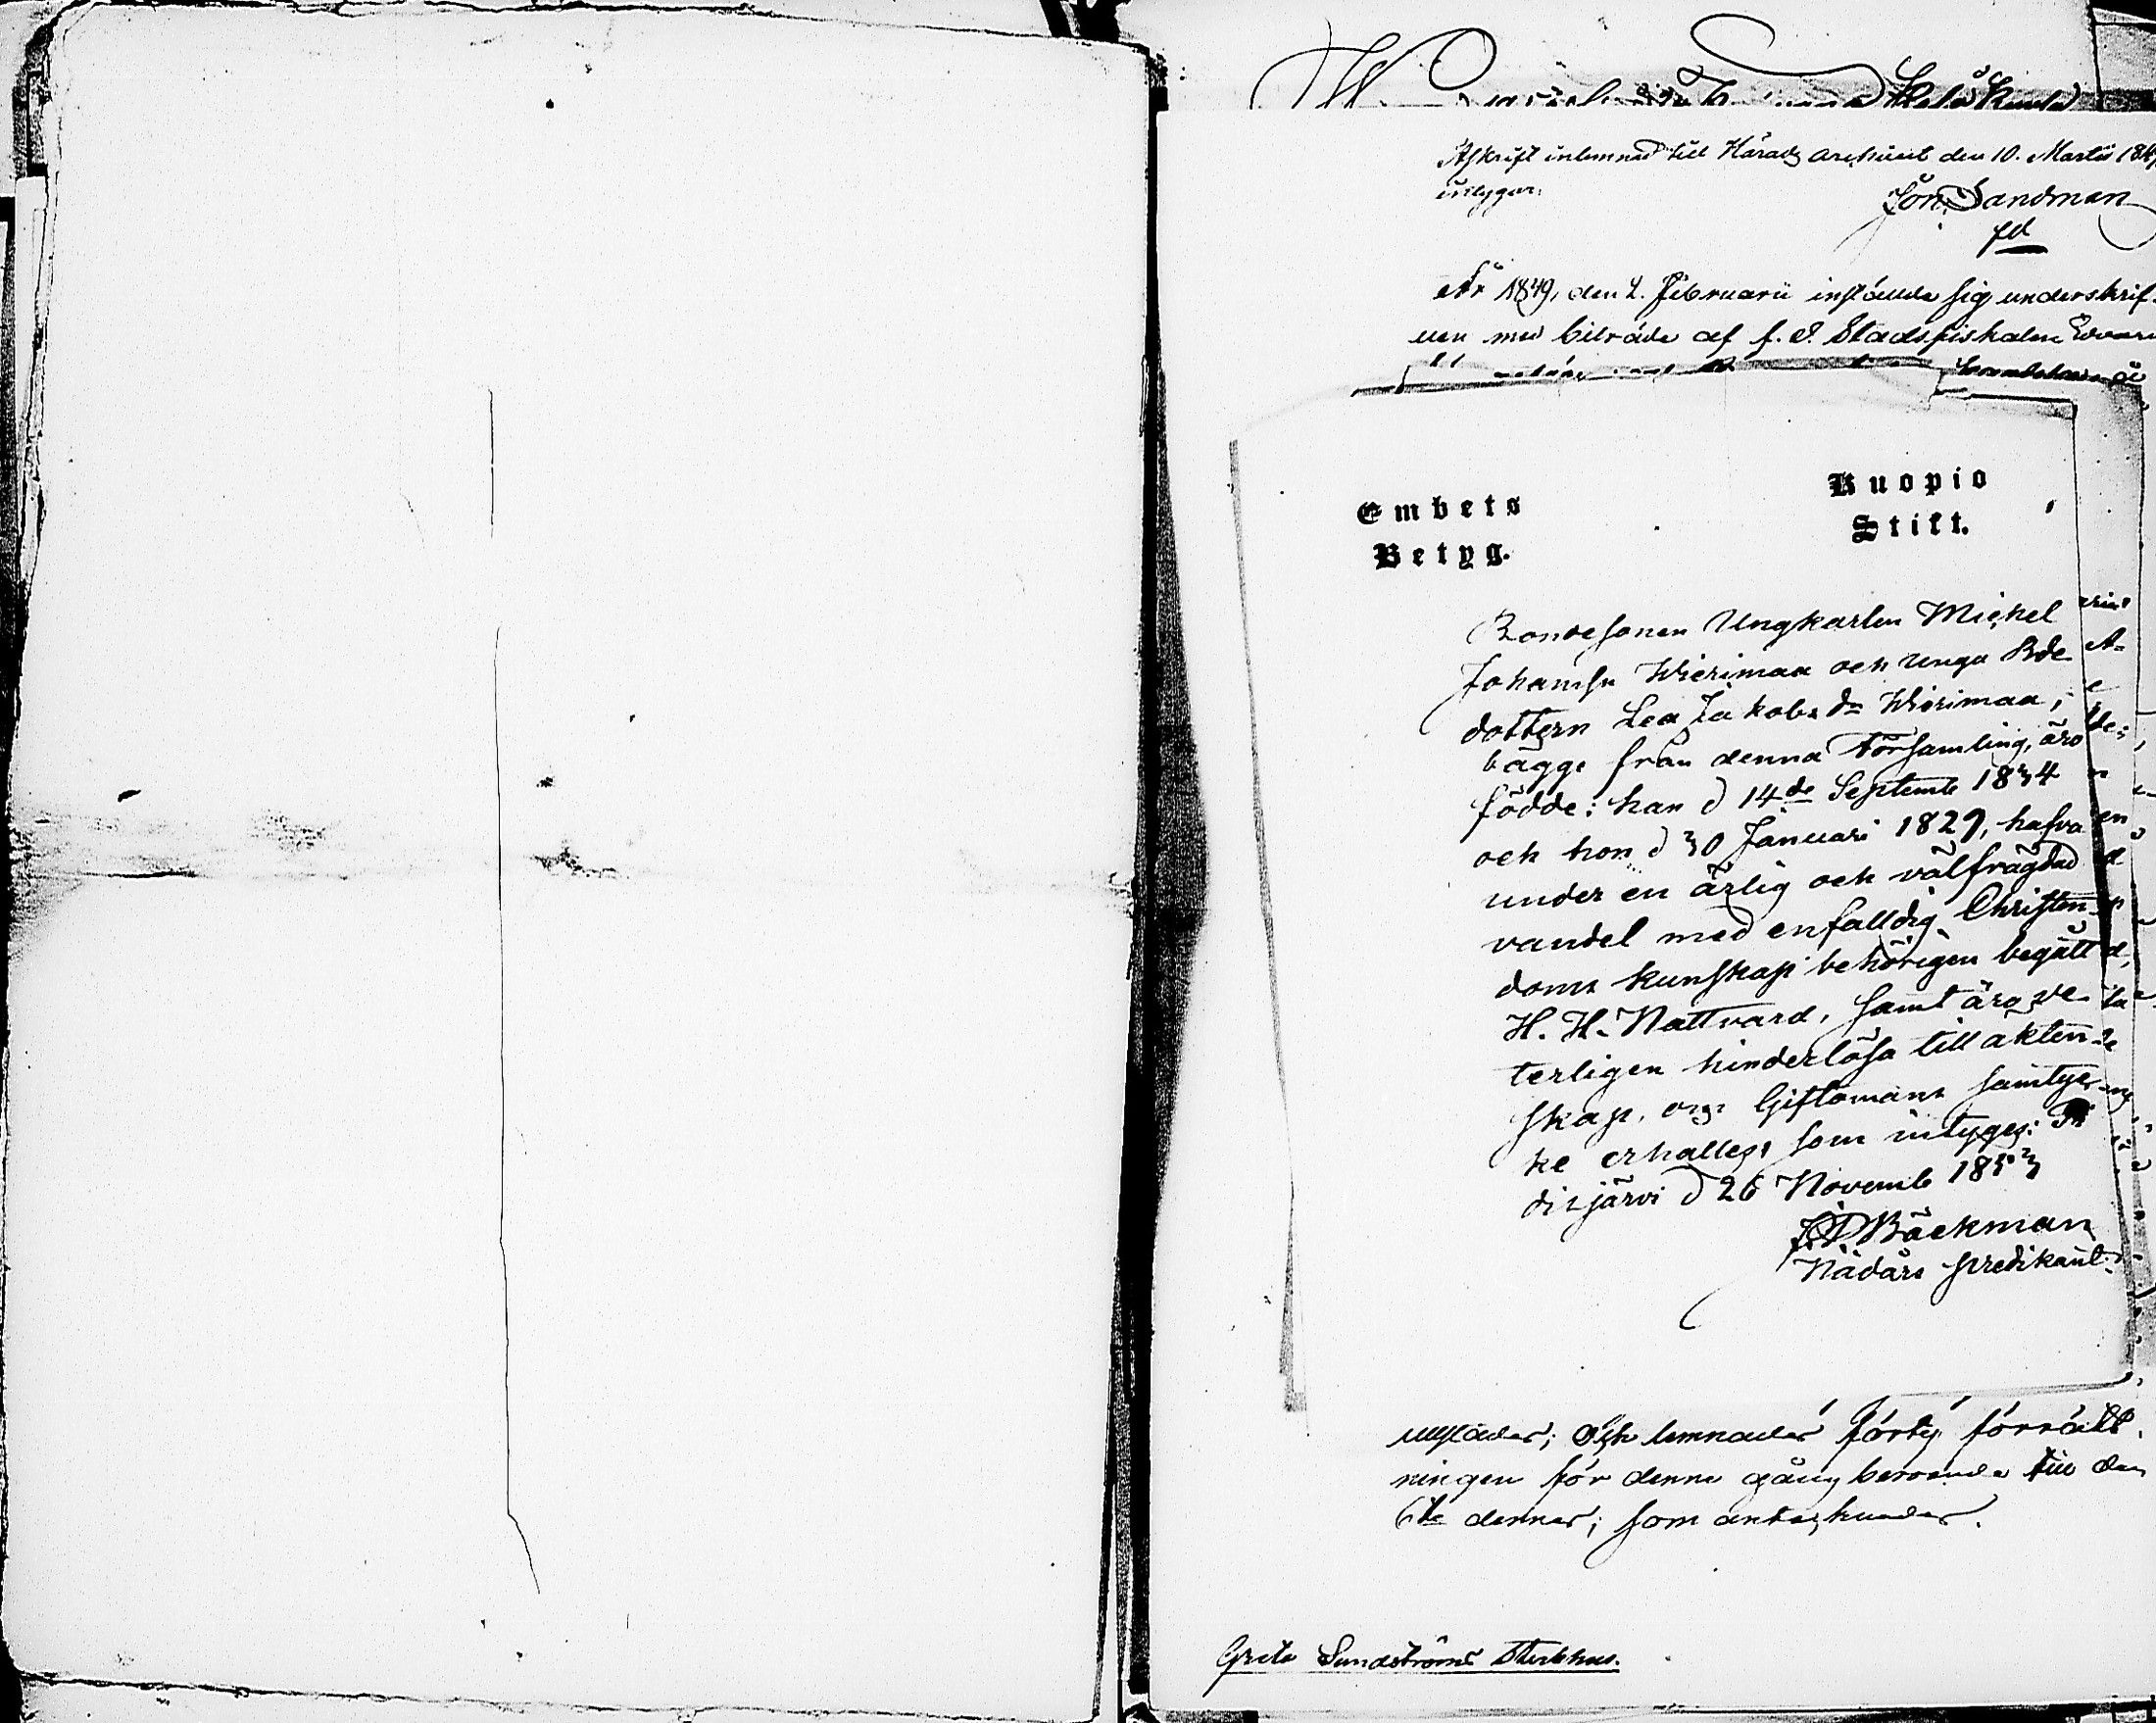 Afskrift inlemnad till Härads archivet den 10. Martii 18
intygar:
Jon. Sandman
fd
År 1849, den 2. Februarii inställde sig underskrif-
ven med biträde af f. d. Stadsfiskalen Edvard
Embets
Betyg.
Kuopio
Stift.
Bondesonen Ungkarlen Michel
Johanss. Wierimaa och unga Bde
dottern Lea Jakobs dr Wierimaa,
bägge från denna Församling, äro
födde: han d 14de Septemb 1834
och hon d 30 Januari 1829, hafva
under en ärlig och välfrägdad
vandel med enfalldig Christen-
doms kunskap behörigen begått
H. H. Nattvard, samt äro ve-
terligen hinderlösa till äkten-
skap, om Giftomans samtyc-
ke erhålles, som intygas: Pi
disjärvi d 26 Novemb 1853
Bäckman
Nådårs predikant.
och lemnades förty förrätt-
ningen för denna gång beroende till den
6te dennes; som antecknades.
Greta Sundströms Sterbhus.